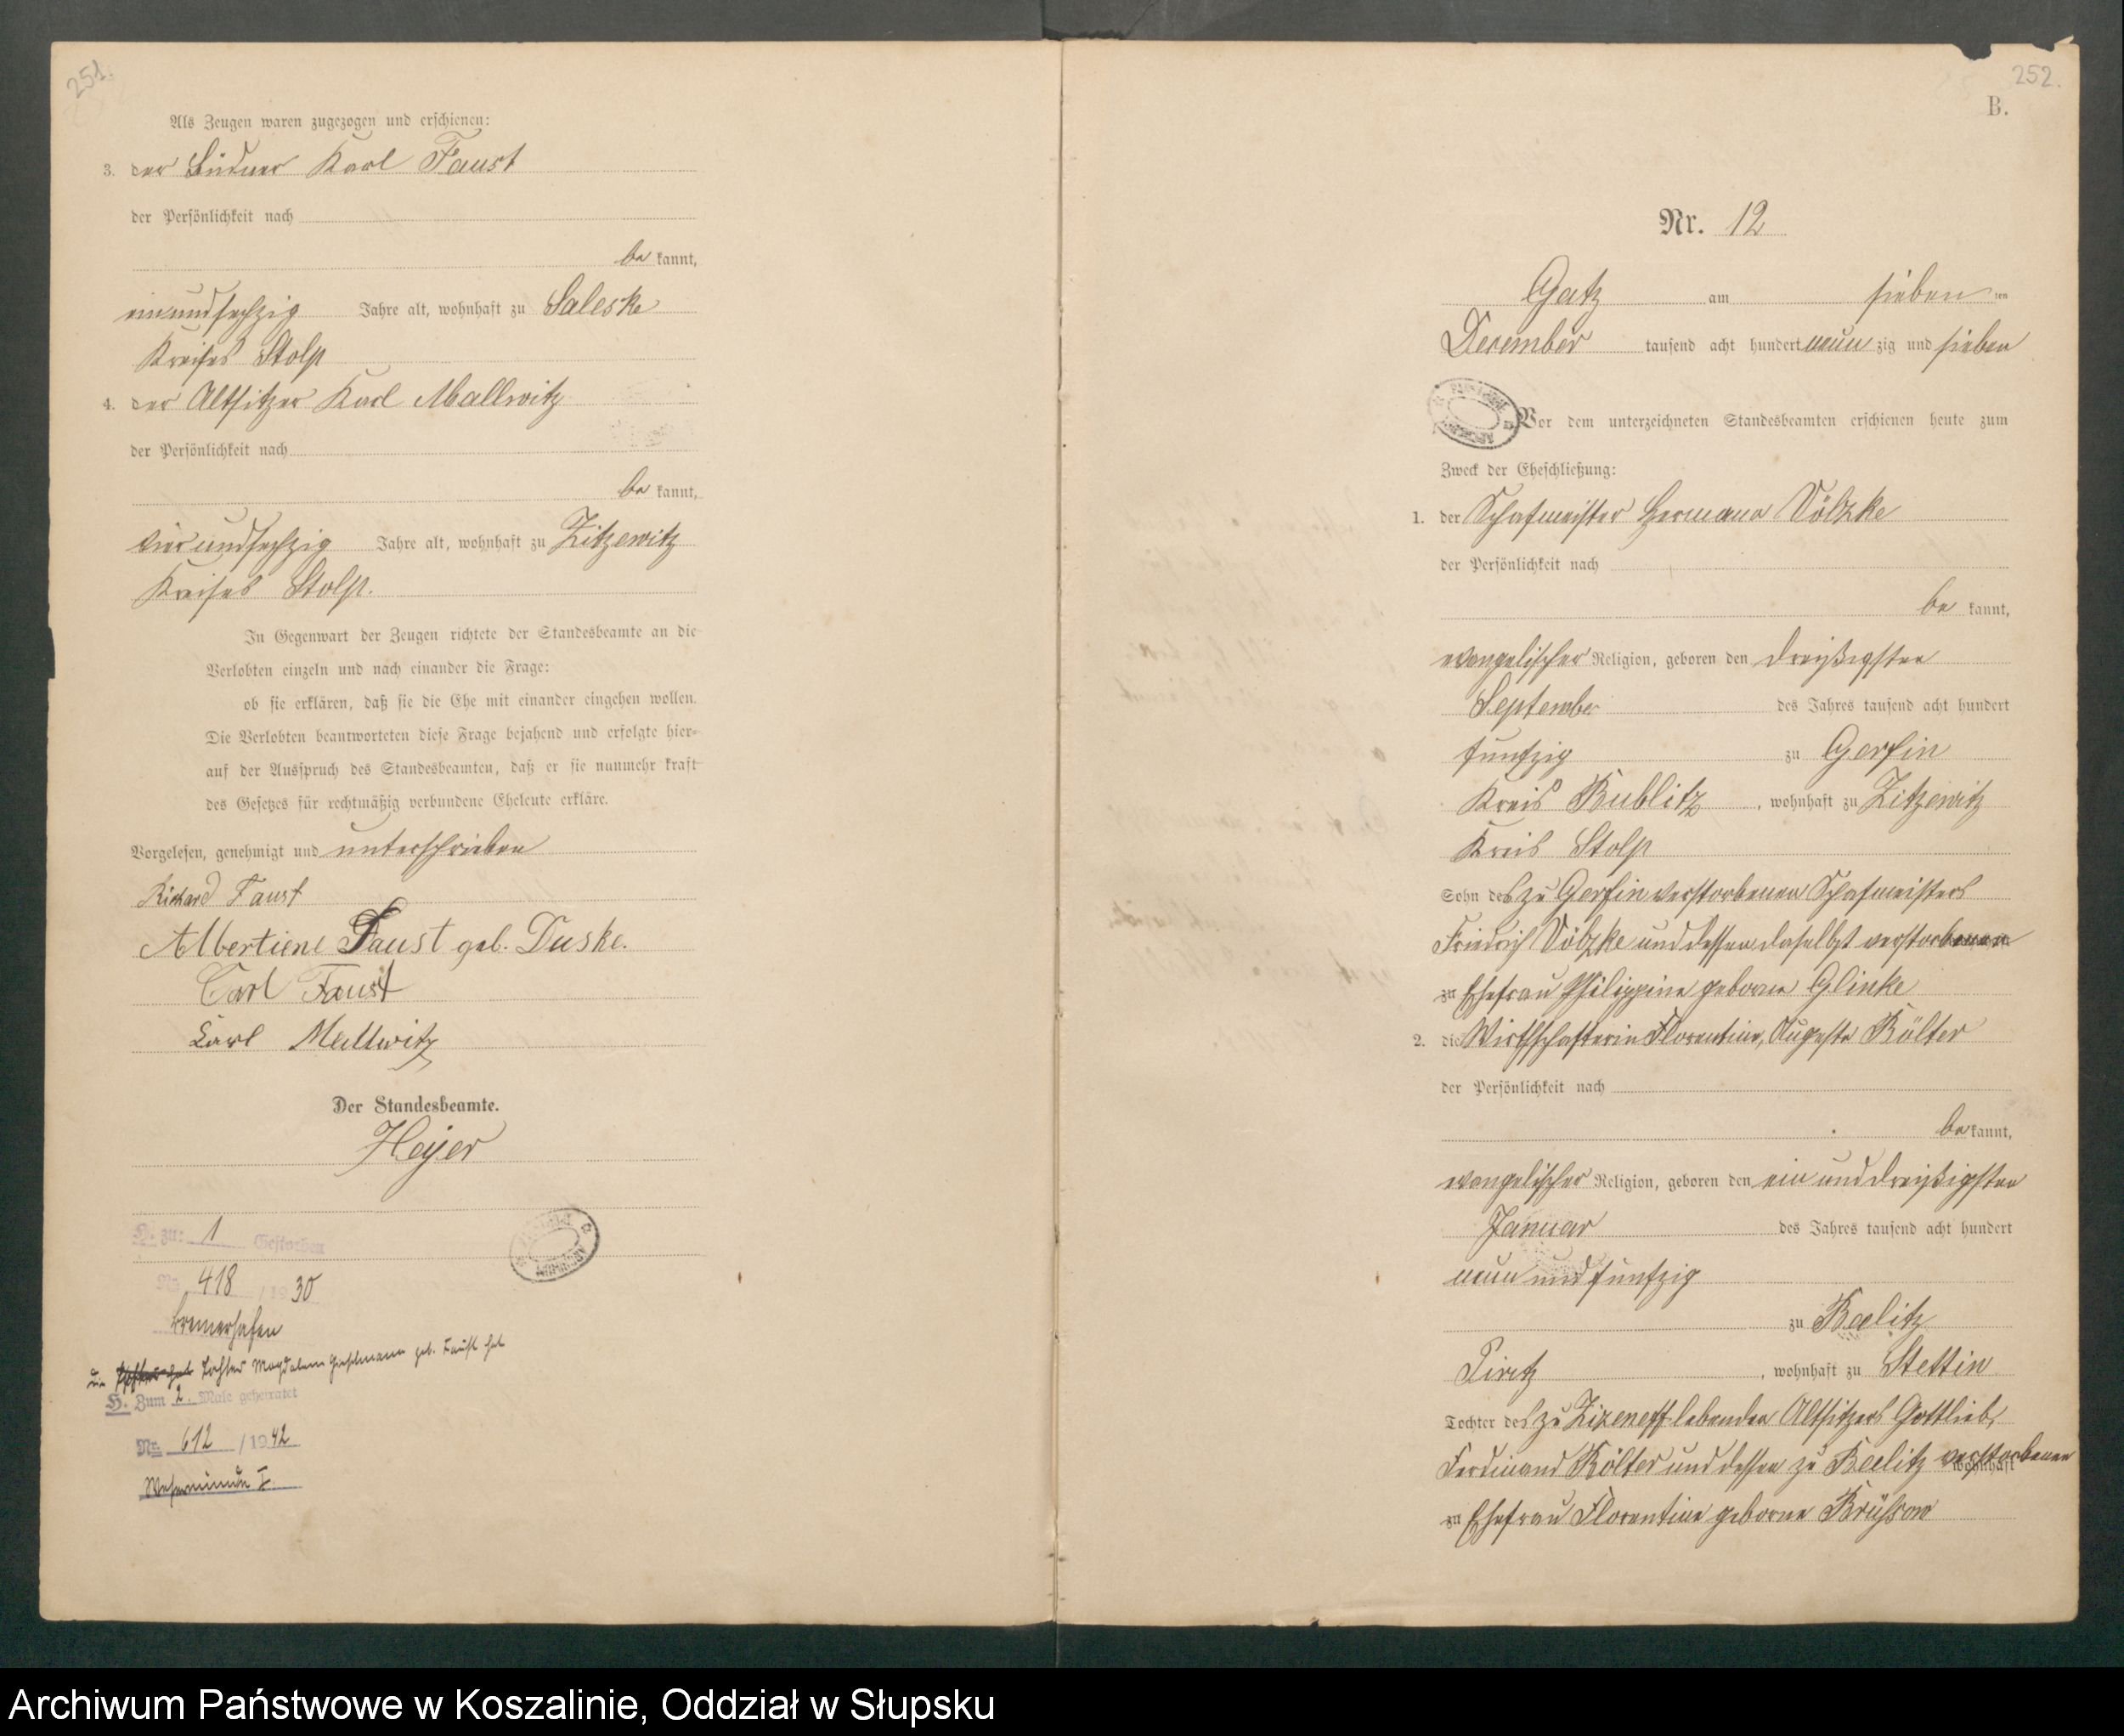 251.
Als Zeugen waren zugezogen und erschienen:
3. der Büdner Karl Faust
der Persönlichkeit nach
be kannt,
einundsechzig Jahre alt, wohnhaft zu Saleske
Kreises Stolp
4. der Altsitzer Karl Mallwitz
der Persönlichkeit nach
be kannt,
vierundsechzig Jahre alt, wohnhaft zu Zitzewitz
Kreises Stolp.
In Gegenwart der Zeugen richtete der Standesbeamte an die
Verlobten einzeln und nach einander die Frage:
ob sie erklären, daß sie die Ehe mit einander eingehen wollen.
Die Verlobten beantworteten diese Frage bejahend und erfolgte hier-
auf der Ausspruch des Standesbeamten, daß er sie nunmehr kraft
des Gesetzes für rechtmäßig verbundene Eheleute erkläre.
Vorgelesen, genehmigt und unterschrieben
Richard Faust
Albertiene Faust geb. Duske.
Carl Faust
Karl Mallwitz
Der Standesbeamte.
Heyer
H. zu: 1 Gestorben
Nr. 418 /1930
Bremerhafen
Tochter Magdalena geb. Faust hat
H. Zum 2. Male geheiratet
Nr. 612 /1942
Wesermünde I.
252.
B.
Nr. 12
Gatz am sieben ten
December tausend acht hundert neun zig und sieben
Vor dem unterzeichneten Standesbeamten erschienen heute zum
Zweck der Eheschließung:
1. der Schafmeister Hermann Völzke
der Persönlichkeit nach
be kannt,
evangelischer Religion, geboren den dreißigsten
September des Jahres tausend acht hundert
funfzig zu Gerfin
Kreis Bublitz, wohnhaft zu Zitzewitz
Kreis Stolp
Sohn des zu Gerfin verstorbenen Schafmeisters
Friedrich Völzke und dessen daselbst verstorbenen
zu Ehefrau Philippine geborne Glinke
2. die Wirthschafterin Florentine, Auguste Költer
der Persönlichkeit nach
be kannt,
evangelischer Religion, geboren den ein und dreißigsten
Januar des Jahres tausend acht hundert
neun und funfzig
zu Beelitz
Piritz, wohnhaft zu Stettin
Tochter des zu lebenden Altsitzers Gottlieb,
Ferdinand Költer und dessen zu Beelitz verstorbenen
wohnhaft
zu Ehefrau Florentine geborne Brüssow
Archiwum Państwowe w Koszalinie, Oddział w Słupsku